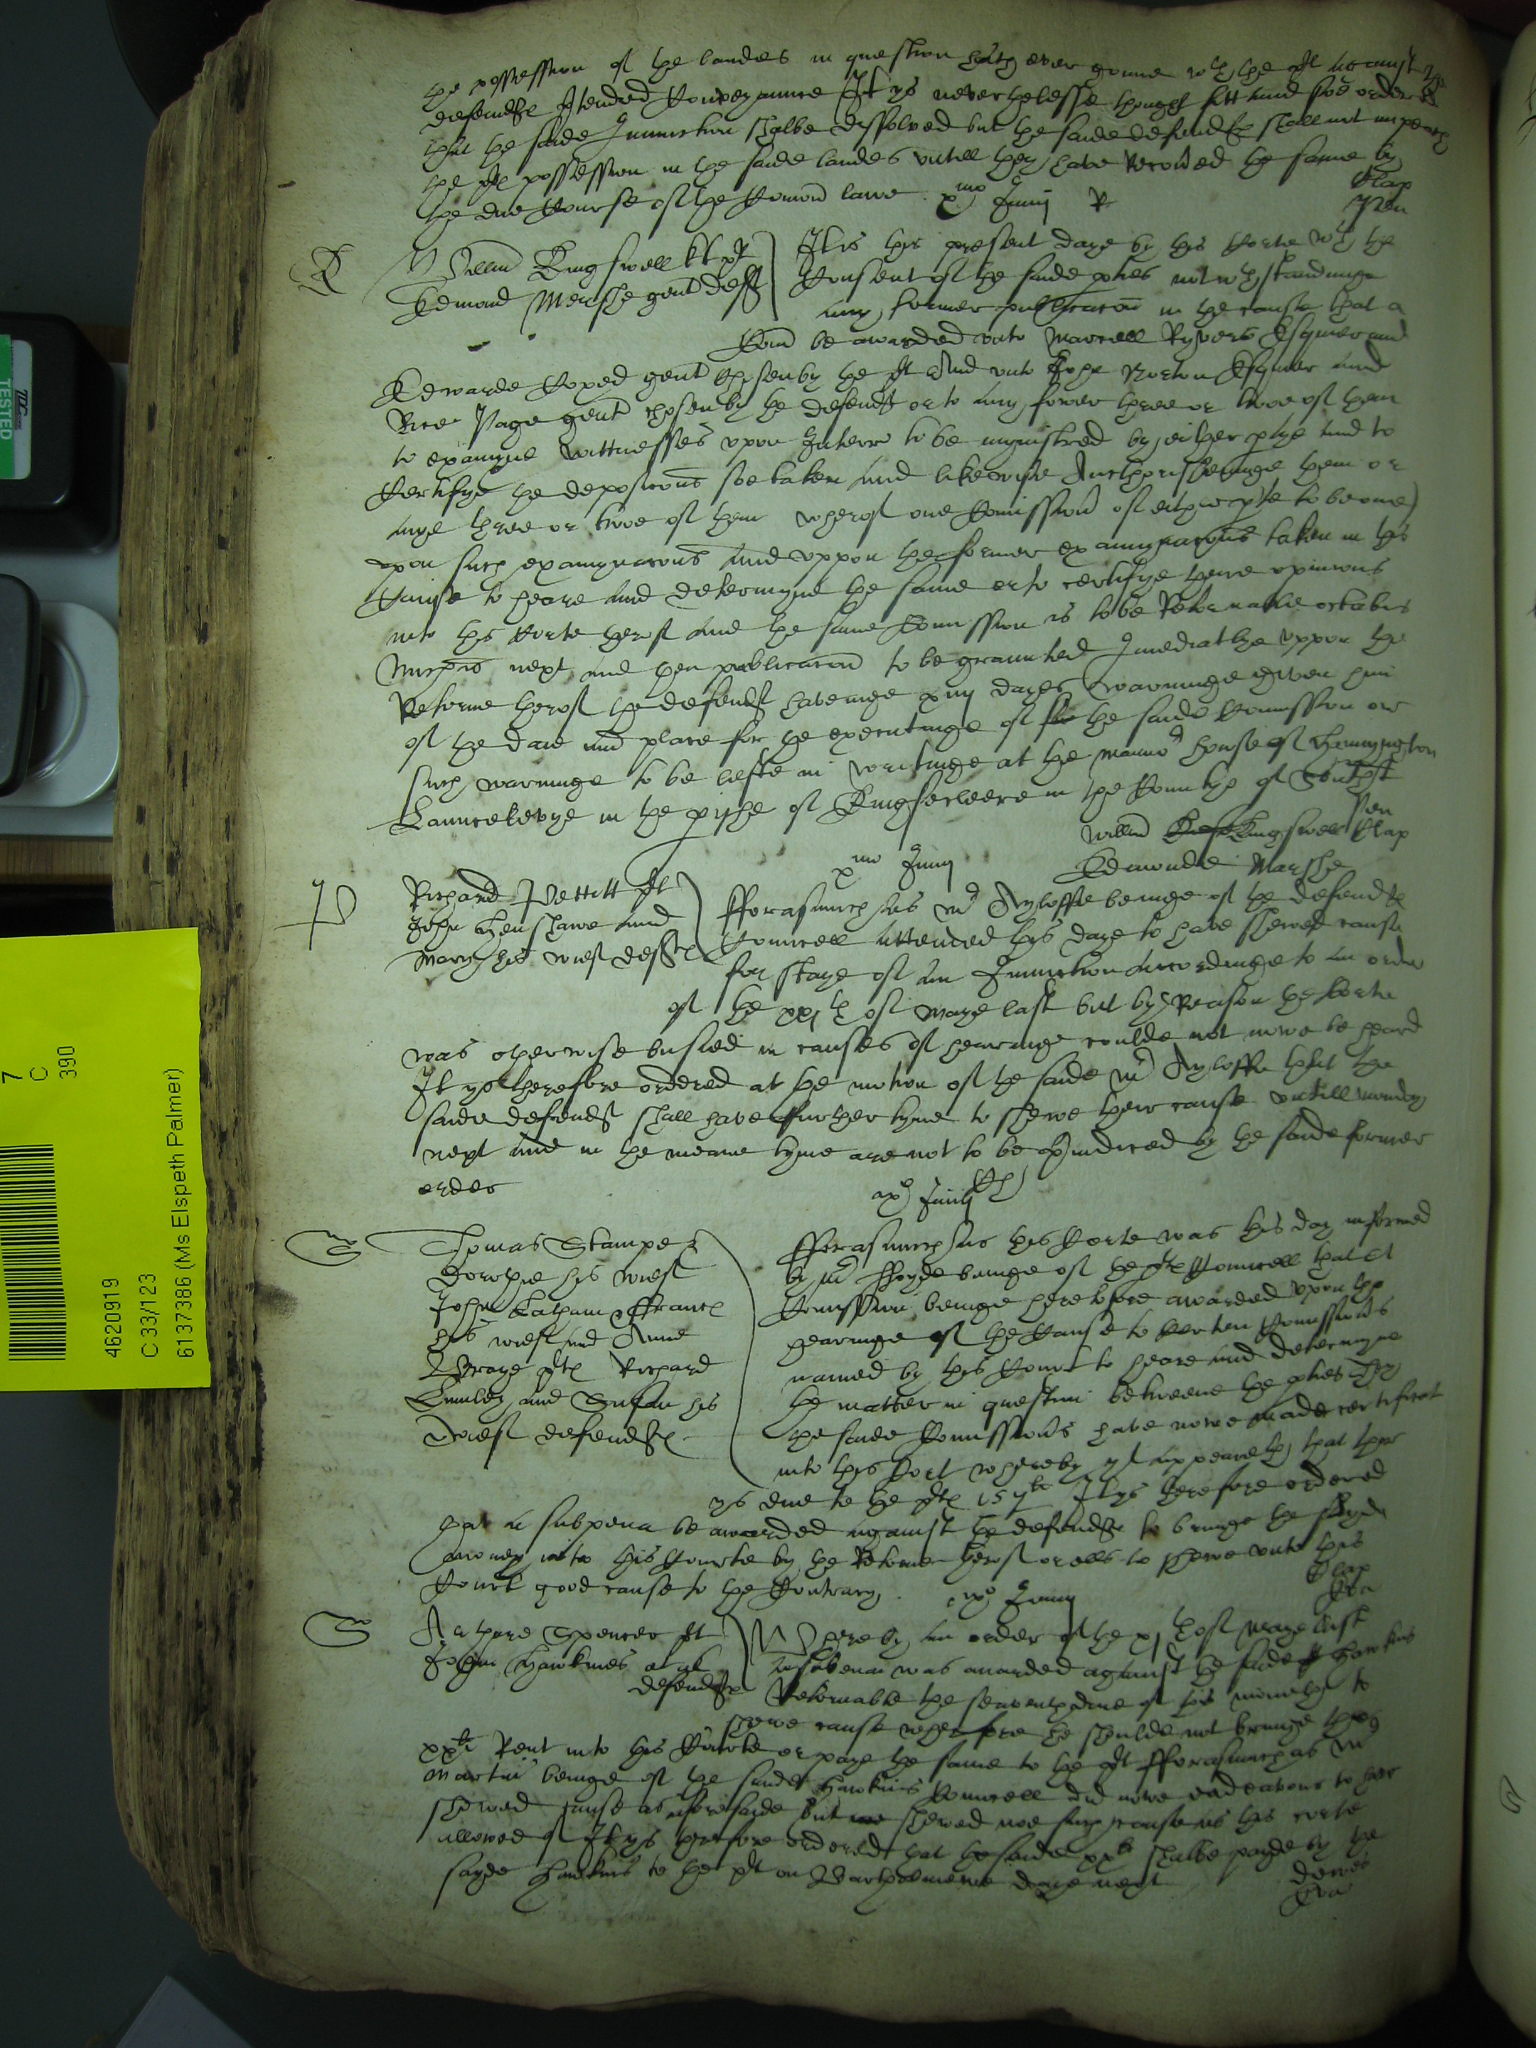 the possession of the landes in question hath ever gonne wth the plt against the
defendtes pretended Conveyaunce It ys neverthelesse thought fitt and soe ordered
that the saide Iniunction shalbe dissolved but the saide defendtes shall not impeach
the pltes possession in the saide landes untill they have recovered the same by
the due Course of the Comon lawe xmo Junij R
Clap
Wm Kingswell kt plt
Edmond Marshe gent deft
It is this present daye by this Corte wth the
Consent of the saide pties notwthstandinge
any former publicacon in the cause that a
Comi be awarded unto Marcell Ryvers Esquier and
Edwarde Coxed gent chosen by the plt And unto John Norton Esquier and
Rice Page gent chosen by the defendt or to any fower three or twoe of them
to examyne wittnesses upon Interr to be ministred by either ptye and to
Certifye the deposicons soe taken And likewise Aucthorishinge them or
anye three or twoe of them wherof one Comission of either ptie to be one
upon such examynacons and uppon the former examynacons taken in this
Cause to heare and determyne the same or to certifye there opinions
into this Corte therof and the same Comission is to be Retornable octabis
Michis next and then publicacon to be graunted Imediatlie uppon the
Retorne therof the defendt haveinge xiiij dayes warninge given him
of the daie and place for the executinge of the saide Comission or
such warninge to be lefte in writinge at the mannor house of Hannyngton
Launcelevye in the pishe of Kingscleere in the Countye of Southt
Willm Kingswell Clap
Edmonde Marshe
xmo Junij
Richard Pettitt plt
John Henshawe and
Mary his wief deftes
Fforasmuch as Mr Ayloffe beinge of the defendtes
Councell attended this daye to have shewed cause
for staye of an Iniunction accordinge to an order
of the xxjth of Maye last but by Reason the Corte
was otherwise busied in causes of hearinge coulde not nowe be heard
It ys therefore ordered at the motion of the saide Mr Ayloffe that the
saide defendt shall have further tyme to shewe their cause untill monday
next and in the meane tyme are not to be piudiced by the saide former
order
xo Junij
Thomas Stampe &
Dorothie his wief
John Latham & Ffraunc
his wief and Anne
Wraye pltes Richard
Lumley and Susan his
Wief defendtes
Fforasmuch as this Corte was this day informed
by Mr Ffloyde beinge of the pltes Councell that A
Comission beinge heretofore awarded upon the
hearinge of the Cause to Certen Comissioners
named by this Court to heare and determyne
the matter in question betweene the pties They
the saide Comissioners have nowe made certificat
into this Cort whereby yt appeareth that there
ys due to the pltes 157li It ys therefore ordered
that a subpena be awarded against the defendtes to bringe the sayde
money into this Courte by the Retorne therof or ells to shewe unto this
Court good cause to the Contrary
xo Junij
Clap
Spencer plt
John Hawkines et al
defendtes
Whereby an order of the xjth of Maye last
a subpena was awarded against the saide Hawkins
Retornable the seaventh daie of this moneth to
shewe cause wherefore he shoulde not bringe the
xxli Rent into this Courte or paye the same to the plt Fforasmuch as Mr
Martin beinge of the saide Hawkins Councell did nowe endeavour to have
shewed cause as aforesaide but shewed noe such cause as this corte
allowed of It ys therefore ordered that the saide xxli shalbe payde by the
sayde Hawkins to the plt on Bartholmewe daye next
TESTED
7
C
390
4620919
C 33/123
6137386 (Ms Elspeth Palmer)